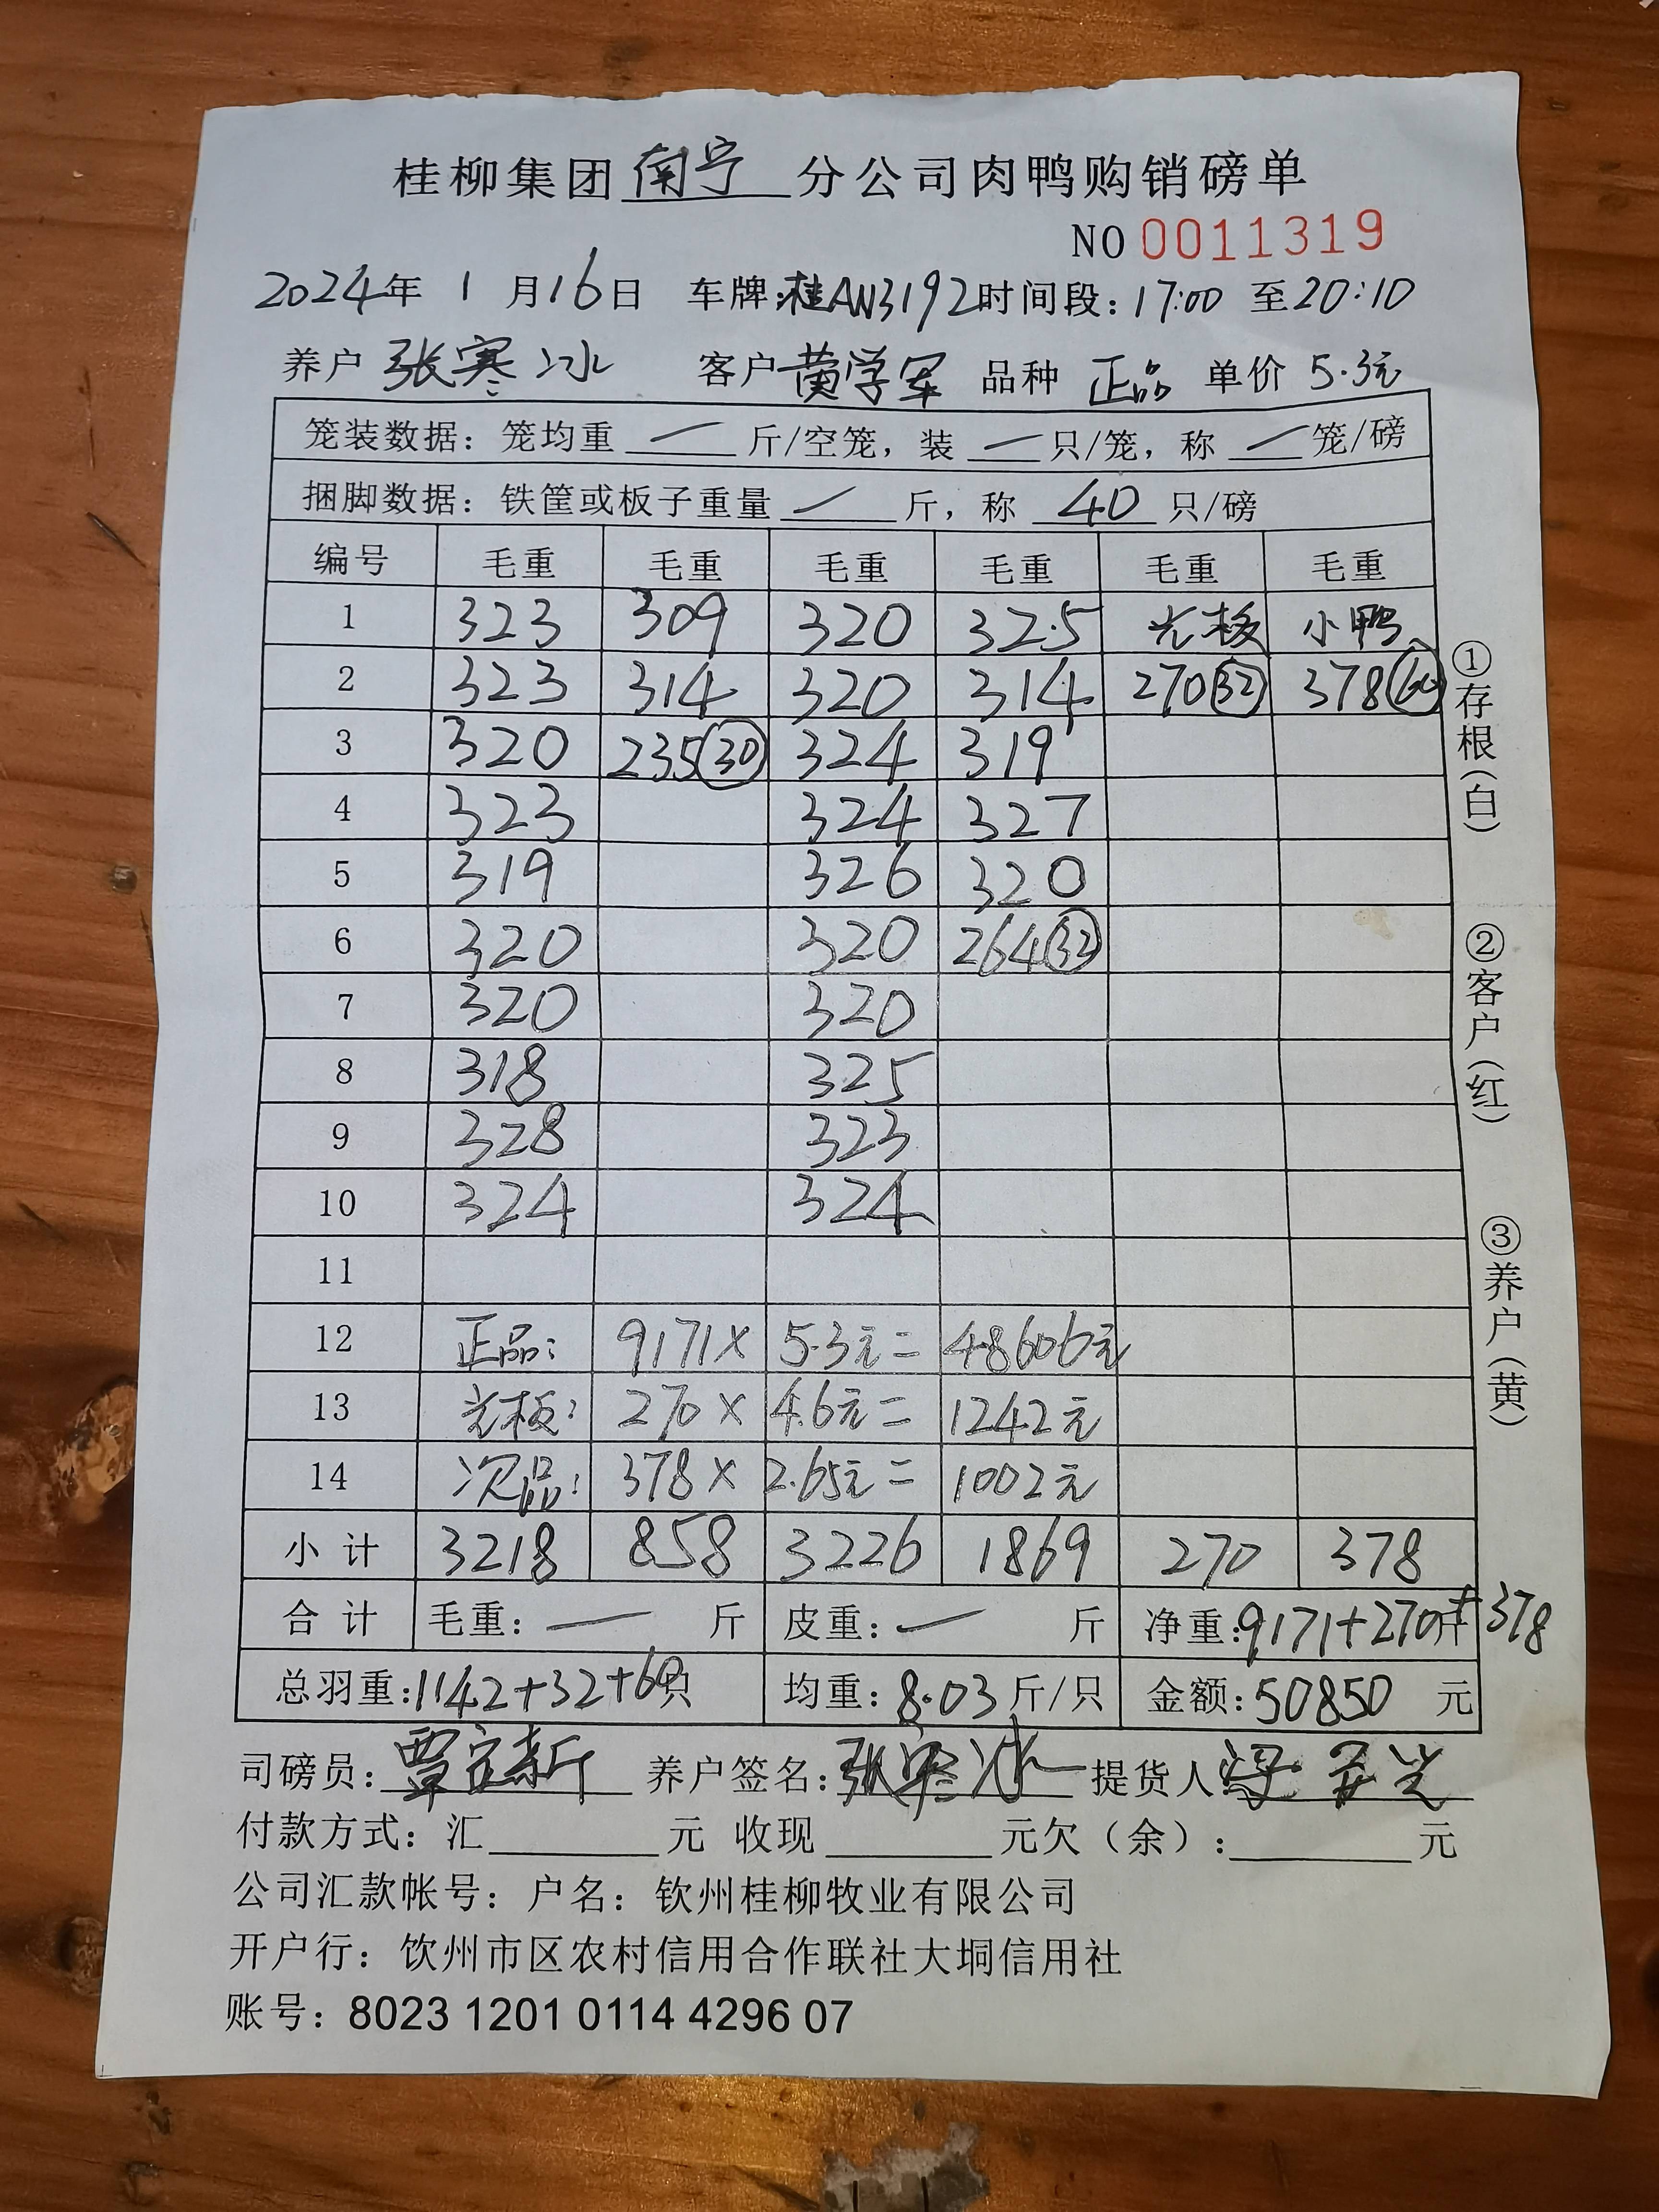 桂柳集团南宁分公司肉鸭购销磅单
NO 0011319
2024年 1 月16日 车牌:桂AN3192时间段: 17:00 至20:10
养户 张寒冰 客户 黄学军 品种 正品 单价 5.3元
笼装数据: 笼均重 — 斤/空笼, 装 — 只/笼, 称 — 笼/磅
捆脚数据: 铁筐或板子重量 — 斤, 称 40 只/磅
编号 毛重 毛重 毛重 毛重 毛重 毛重
1 323 309 320 325 光板 小鸭
2 323 314 320 314 270(32) 378(60)
3 320 235(30) 324 319
4 323 324 327
5 319 326 320
6 320 320 264(32)
7 320 320
8 318 325
9 328 323
10 324 324
11
12 正品: 9171× 5.3元= 48606元
13 光板: 270× 4.6元= 1242元
14 次品: 378× 2.65元= 1002元
小计 3218 858 3226 1869 270 378
合计 毛重: — 斤 皮重: — 斤 净重:9171+270斤+378
总羽重:1142+32+60只 均重:8.03斤/只 金额:50850 元
司磅员: 覃定新 养户签名:张寒冰 提货人
付款方式: 汇 元 收现 元欠(余): 元
公司汇款帐号: 户名: 钦州桂柳牧业有限公司
开户行: 饮州市区农村信用合作联社大垌信用社
账号: 8023 1201 0114 4296 07
①存根(白)
②客户(红)
③养户(黄)